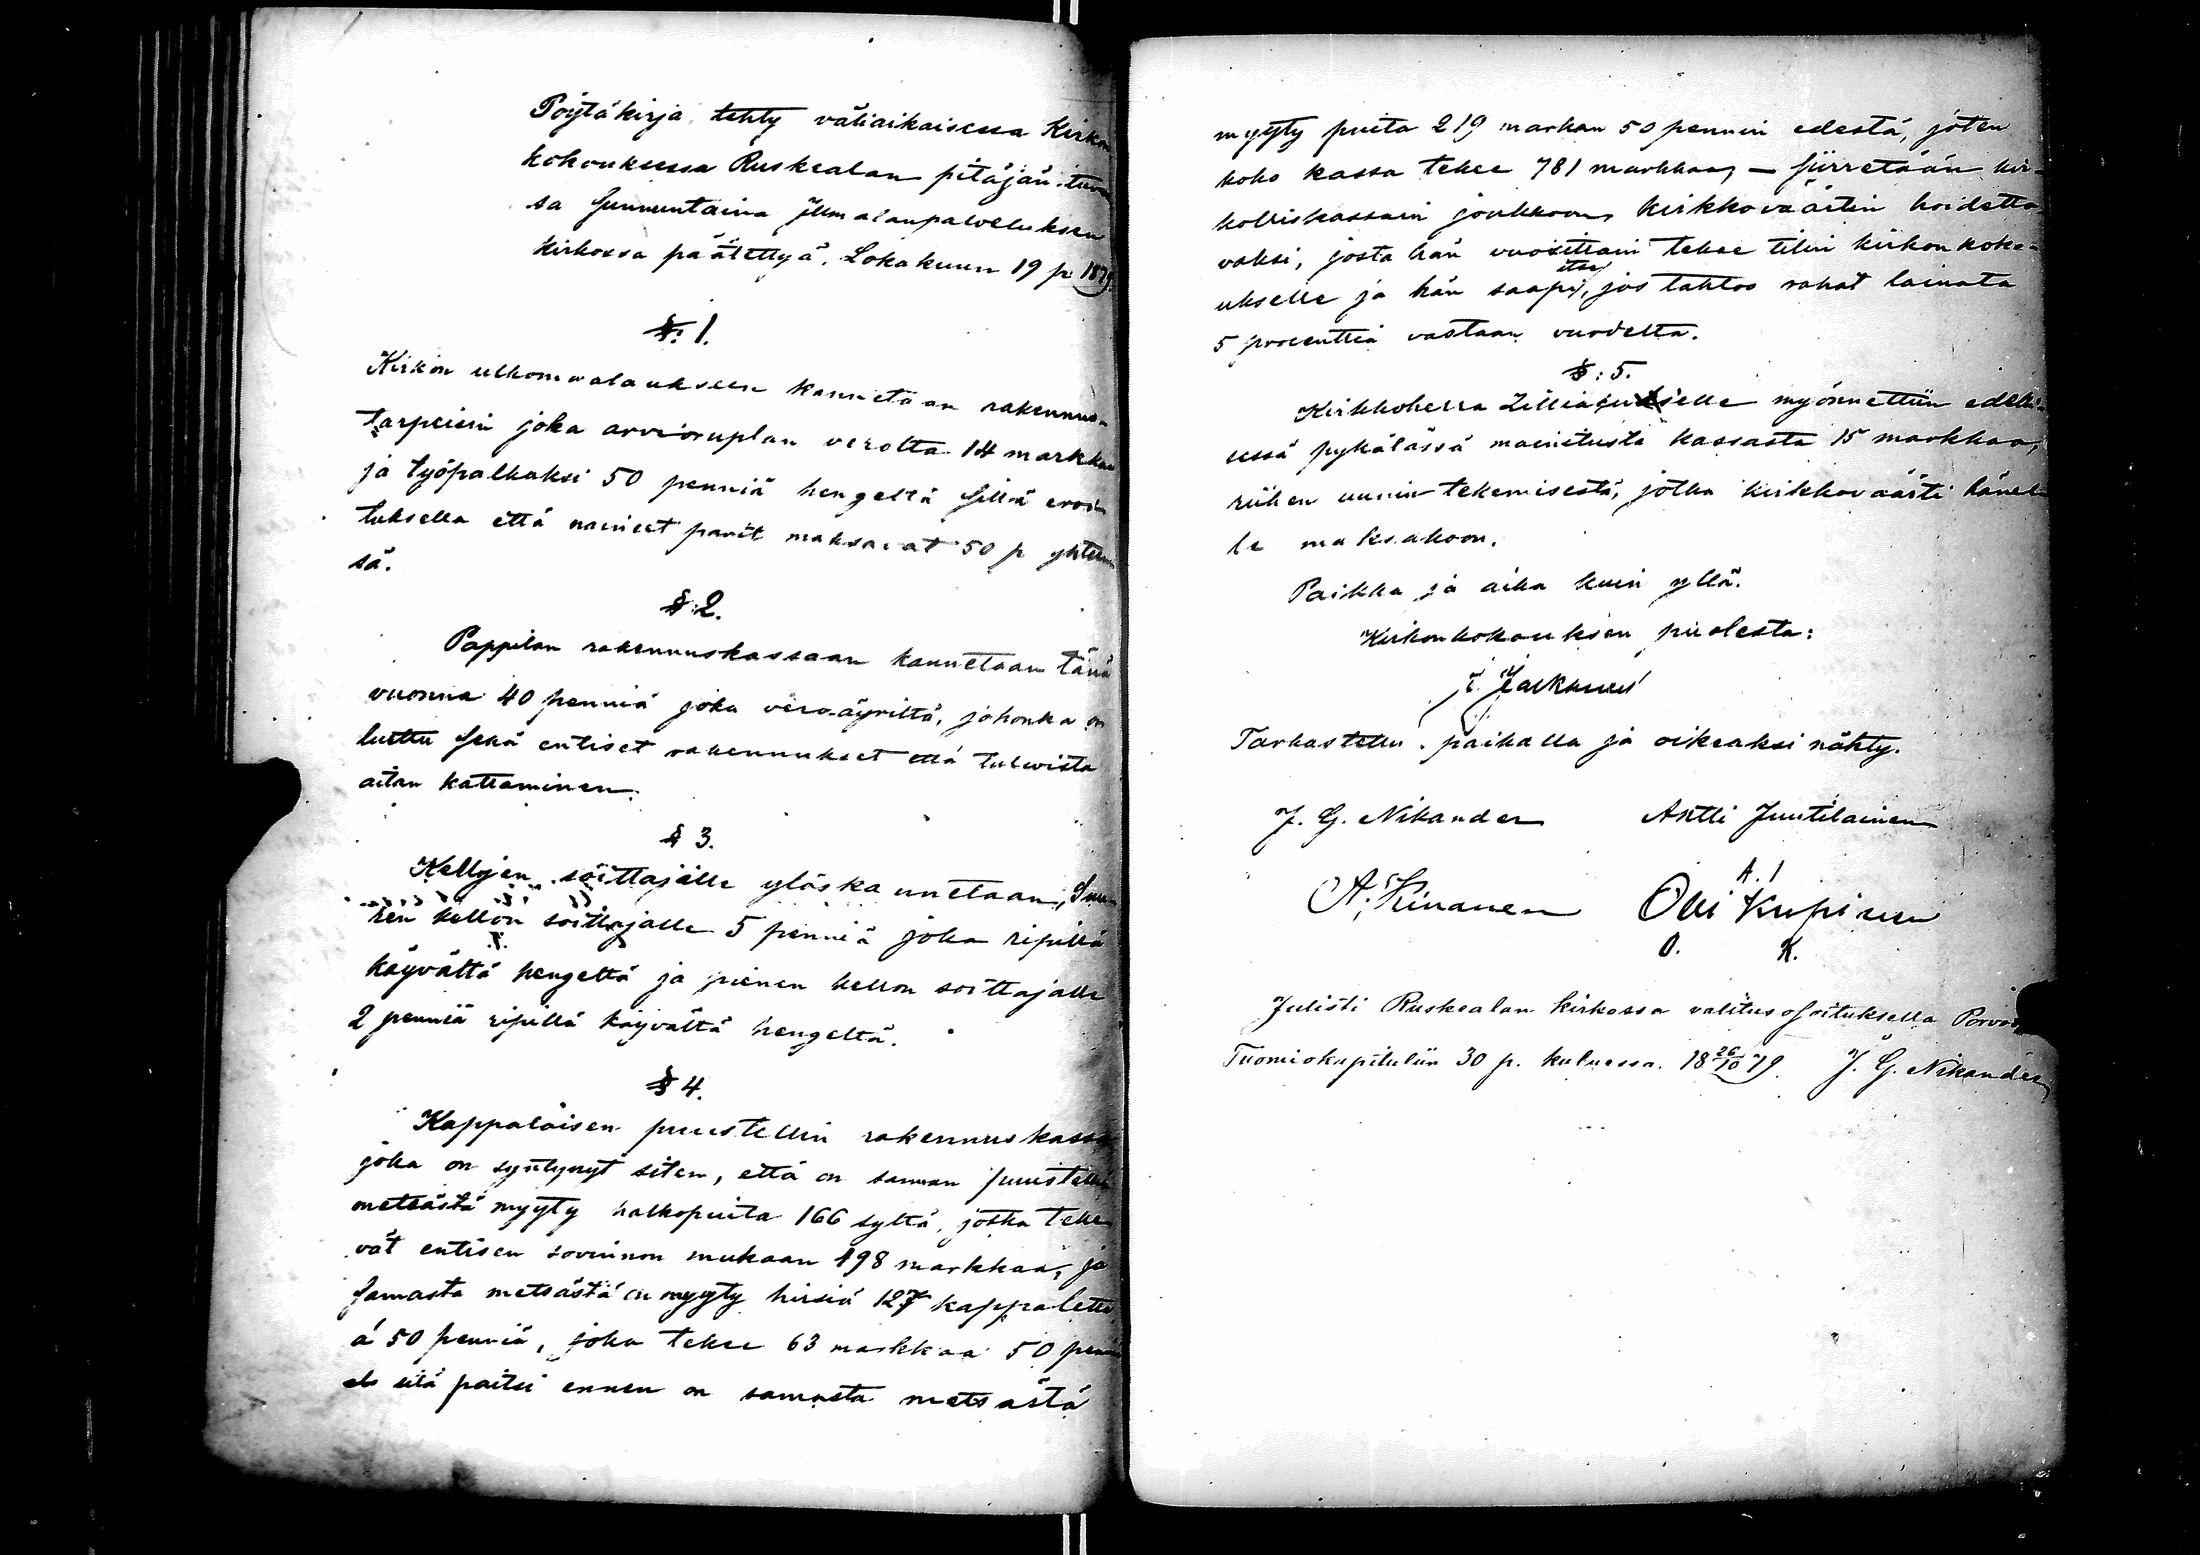 Pöytäkirja, tehty väliaikaisessa Kirkon
kokouksessa Ruskealan pitäjän tuvas
sa Sunnuntaina Jumalanpalveluksen
kirkossa päätettyä, Lokakuun 19 p 1879.
§: 1.
Kirkon ulkomaalaukseen kannetaan rakennus
tarpeisin joka arvioruplan verolta 14 markkaa
ja työpalkaksi 50 penniä hengeltä sillä eroi
tuksella että naineet parit maksavat 50 p yhtees
sä.
§: 2.
Pappilan rakennuskassaan kannetaan tänä
vuonna 40 penniä joka veroäyriltä, johonka on
luettu sekä entiset rakennukset että
aitan kattaminen.
§ 3.
Kellojen soittajille ylöskannetaan, Suu-
ren kellon soittajalle 5 penniä joka ripillä
käyvältä hengeltä ja pienen kellon soittajalle
2 penniä ripillä käyvältä hengeltä.
§ 4.
Kappalaisen puustellin rakennuskassa
joka on syntynyt siten, että on saman puustellin
metsästä myyty halkopuita 166 syltä, jotka teke
vät entisen sovinnon mukaan 498 markkaa, ja
samasta metsästä on myyty hirsiä 127 kappaletta
á 50 penniä, joka tekee 63 markkaa 50 penniä
sitä paitsi ennen on samasta metsästä
myyty puita 219 markan 50 pennin edestä, joten
koko kassa tekee 781 markkaa, — siirretään kir-
kolliskassain joukkoon, kirkkoväärtin hoidetta
vaksi, josta hän vuosittain tekee tilin kirkonkoko-
ukselle ja hän saapi itse, jos tahtoo rahat lainata
5 procenttia vastaan vuodelta.
§: 5.
Kirkkoherra Zilliacukselle myönnettiin edelli-
sessä pykälässä mainitusta kassasta 15 markkaa,
riihen uunin tekemisestä, jotka kirkkoväärti hänel
le maksakoon.
Paikka ja aika kuin yllä.
Kirkonkokouksen puolesta:
Tarkastettu paikalla ja oikeaksi nähty.
J. G. Nikander Antti Juutilainen
A. J.
A. Kinanen Olli Kupinen
O. K.
Julisti Ruskealan kirkossa valitusosoituksella Porvoo
Tuomiokapituliin 30 p. kuluessa. 18 26/10 79. J. G. Nikander